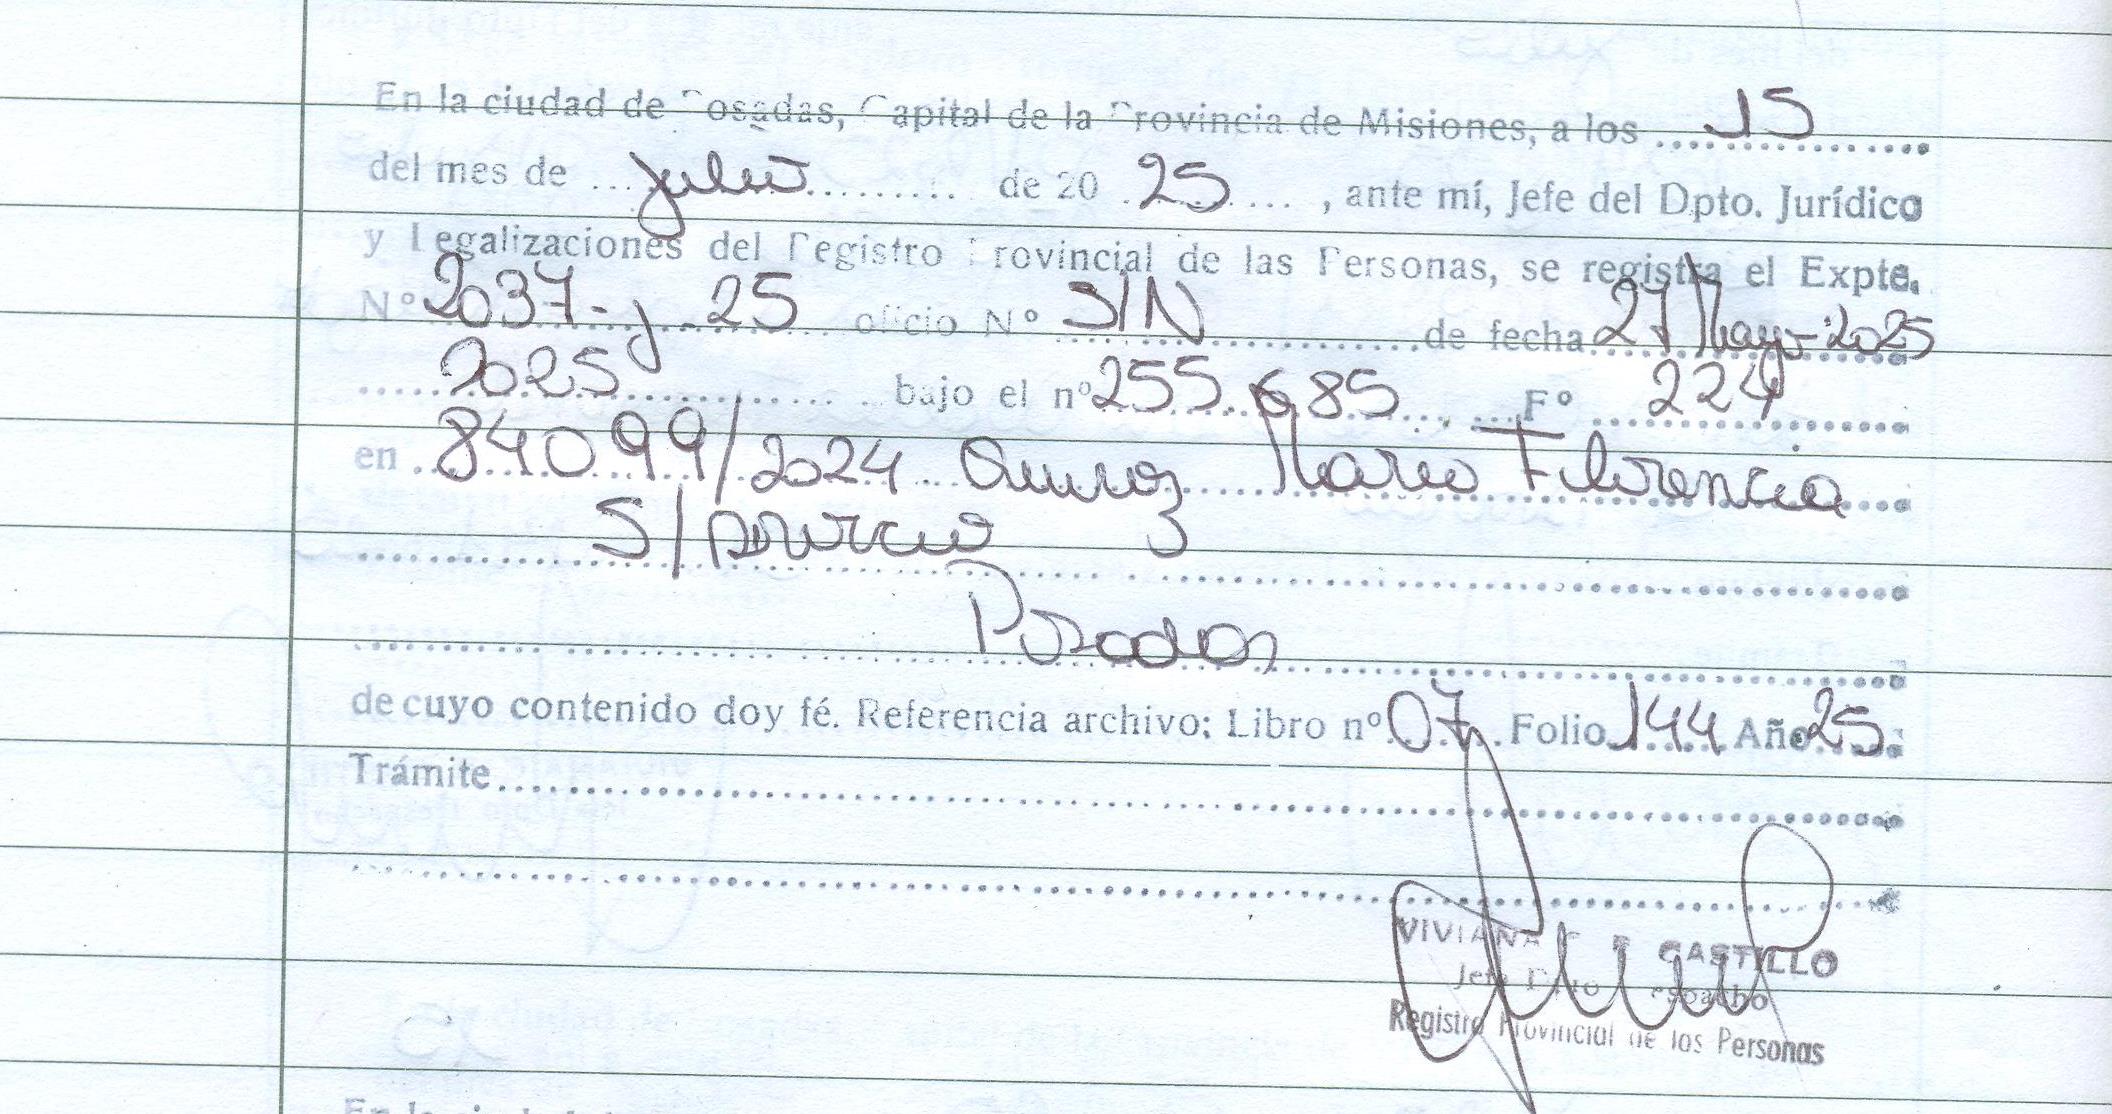 En la ciudad de Posadas, Capital de la Provincia de Misiones, a los 15
del mes de julio de 20 25, ante mí, Jefe del Dpto. Jurídico
y Legalizaciones del Registro Provincial de las Personas, se registra el Expte.
Nº 2037-J-25 oficio Nº S/N de fecha 27 Mayo-2025
2025 bajo el nº 255.685 Fº 224
en 84099/2024 Maria Florencia
S/Divorcio
Posadas
de cuyo contenido doy fé. Referencia archivo; Libro nº 07 Folio 144 Año 25
Trámite
VIVIANA CASTILLO
Jefe Dpto Despacho
Registro Provincial de las Personas